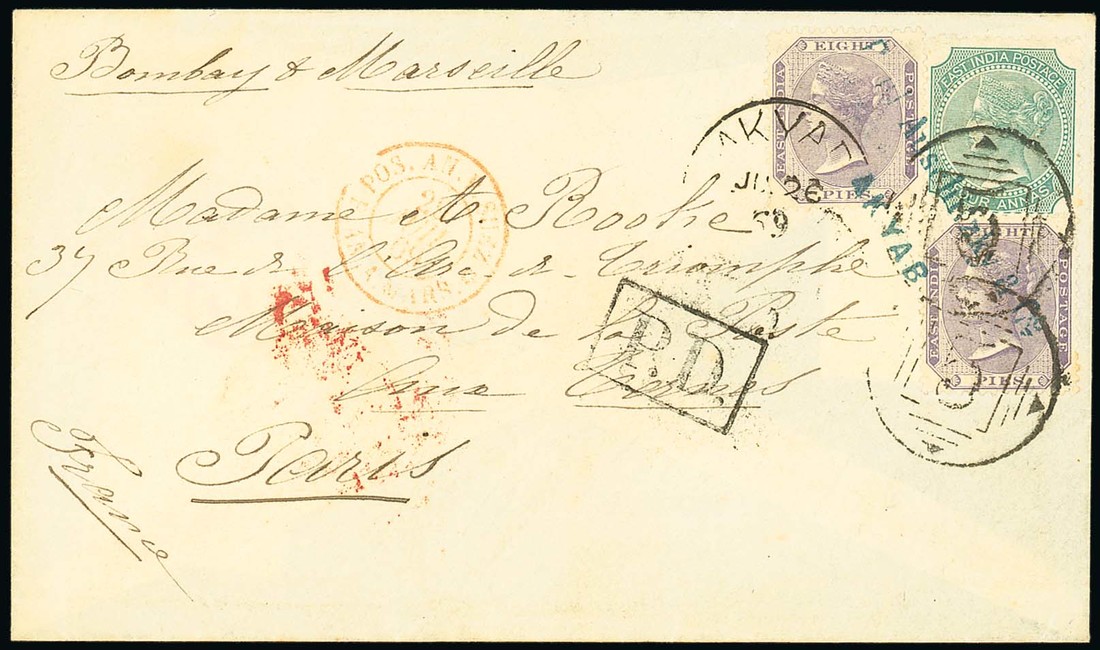 Bombay & Marseille
EIGHT
EAST INDIA
POSTAGE
PIES
EAST INDIA POSTAGE
FOUR ANNAS
EIGHT
EAST INDIA
POSTAGE
PIES.
AKYAB
26
69
AKYAB
POS. AN.
SUEZ
MARS.
Madame A. Rooke
37 Rue de l'Arc de Triomphe
Maison de la Poste
P.D.
aux Ternes
Paris
France